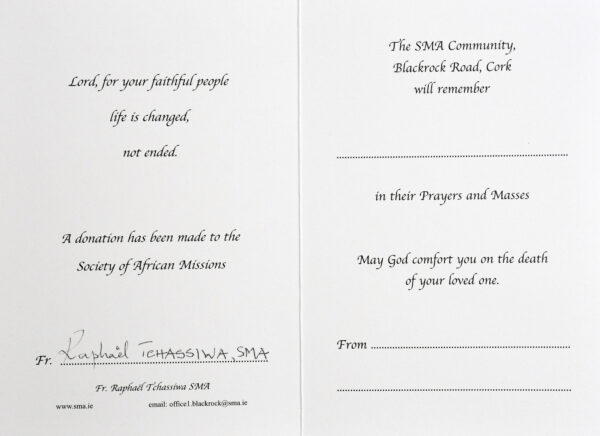 Lord, for your faithful people
life is changed,
not ended.
A donation has been made to the
Society of African Missions
Fr. Raphaël TCHASSIWA, SMA
Fr. Raphaël Tchassiwa SMA
www.sma.ie email: office1.blackrock@sma.ie
The SMA Community,
Blackrock Road, Cork
will remember
in their Prayers and Masses
May God comfort you on the death
of your loved one.
From